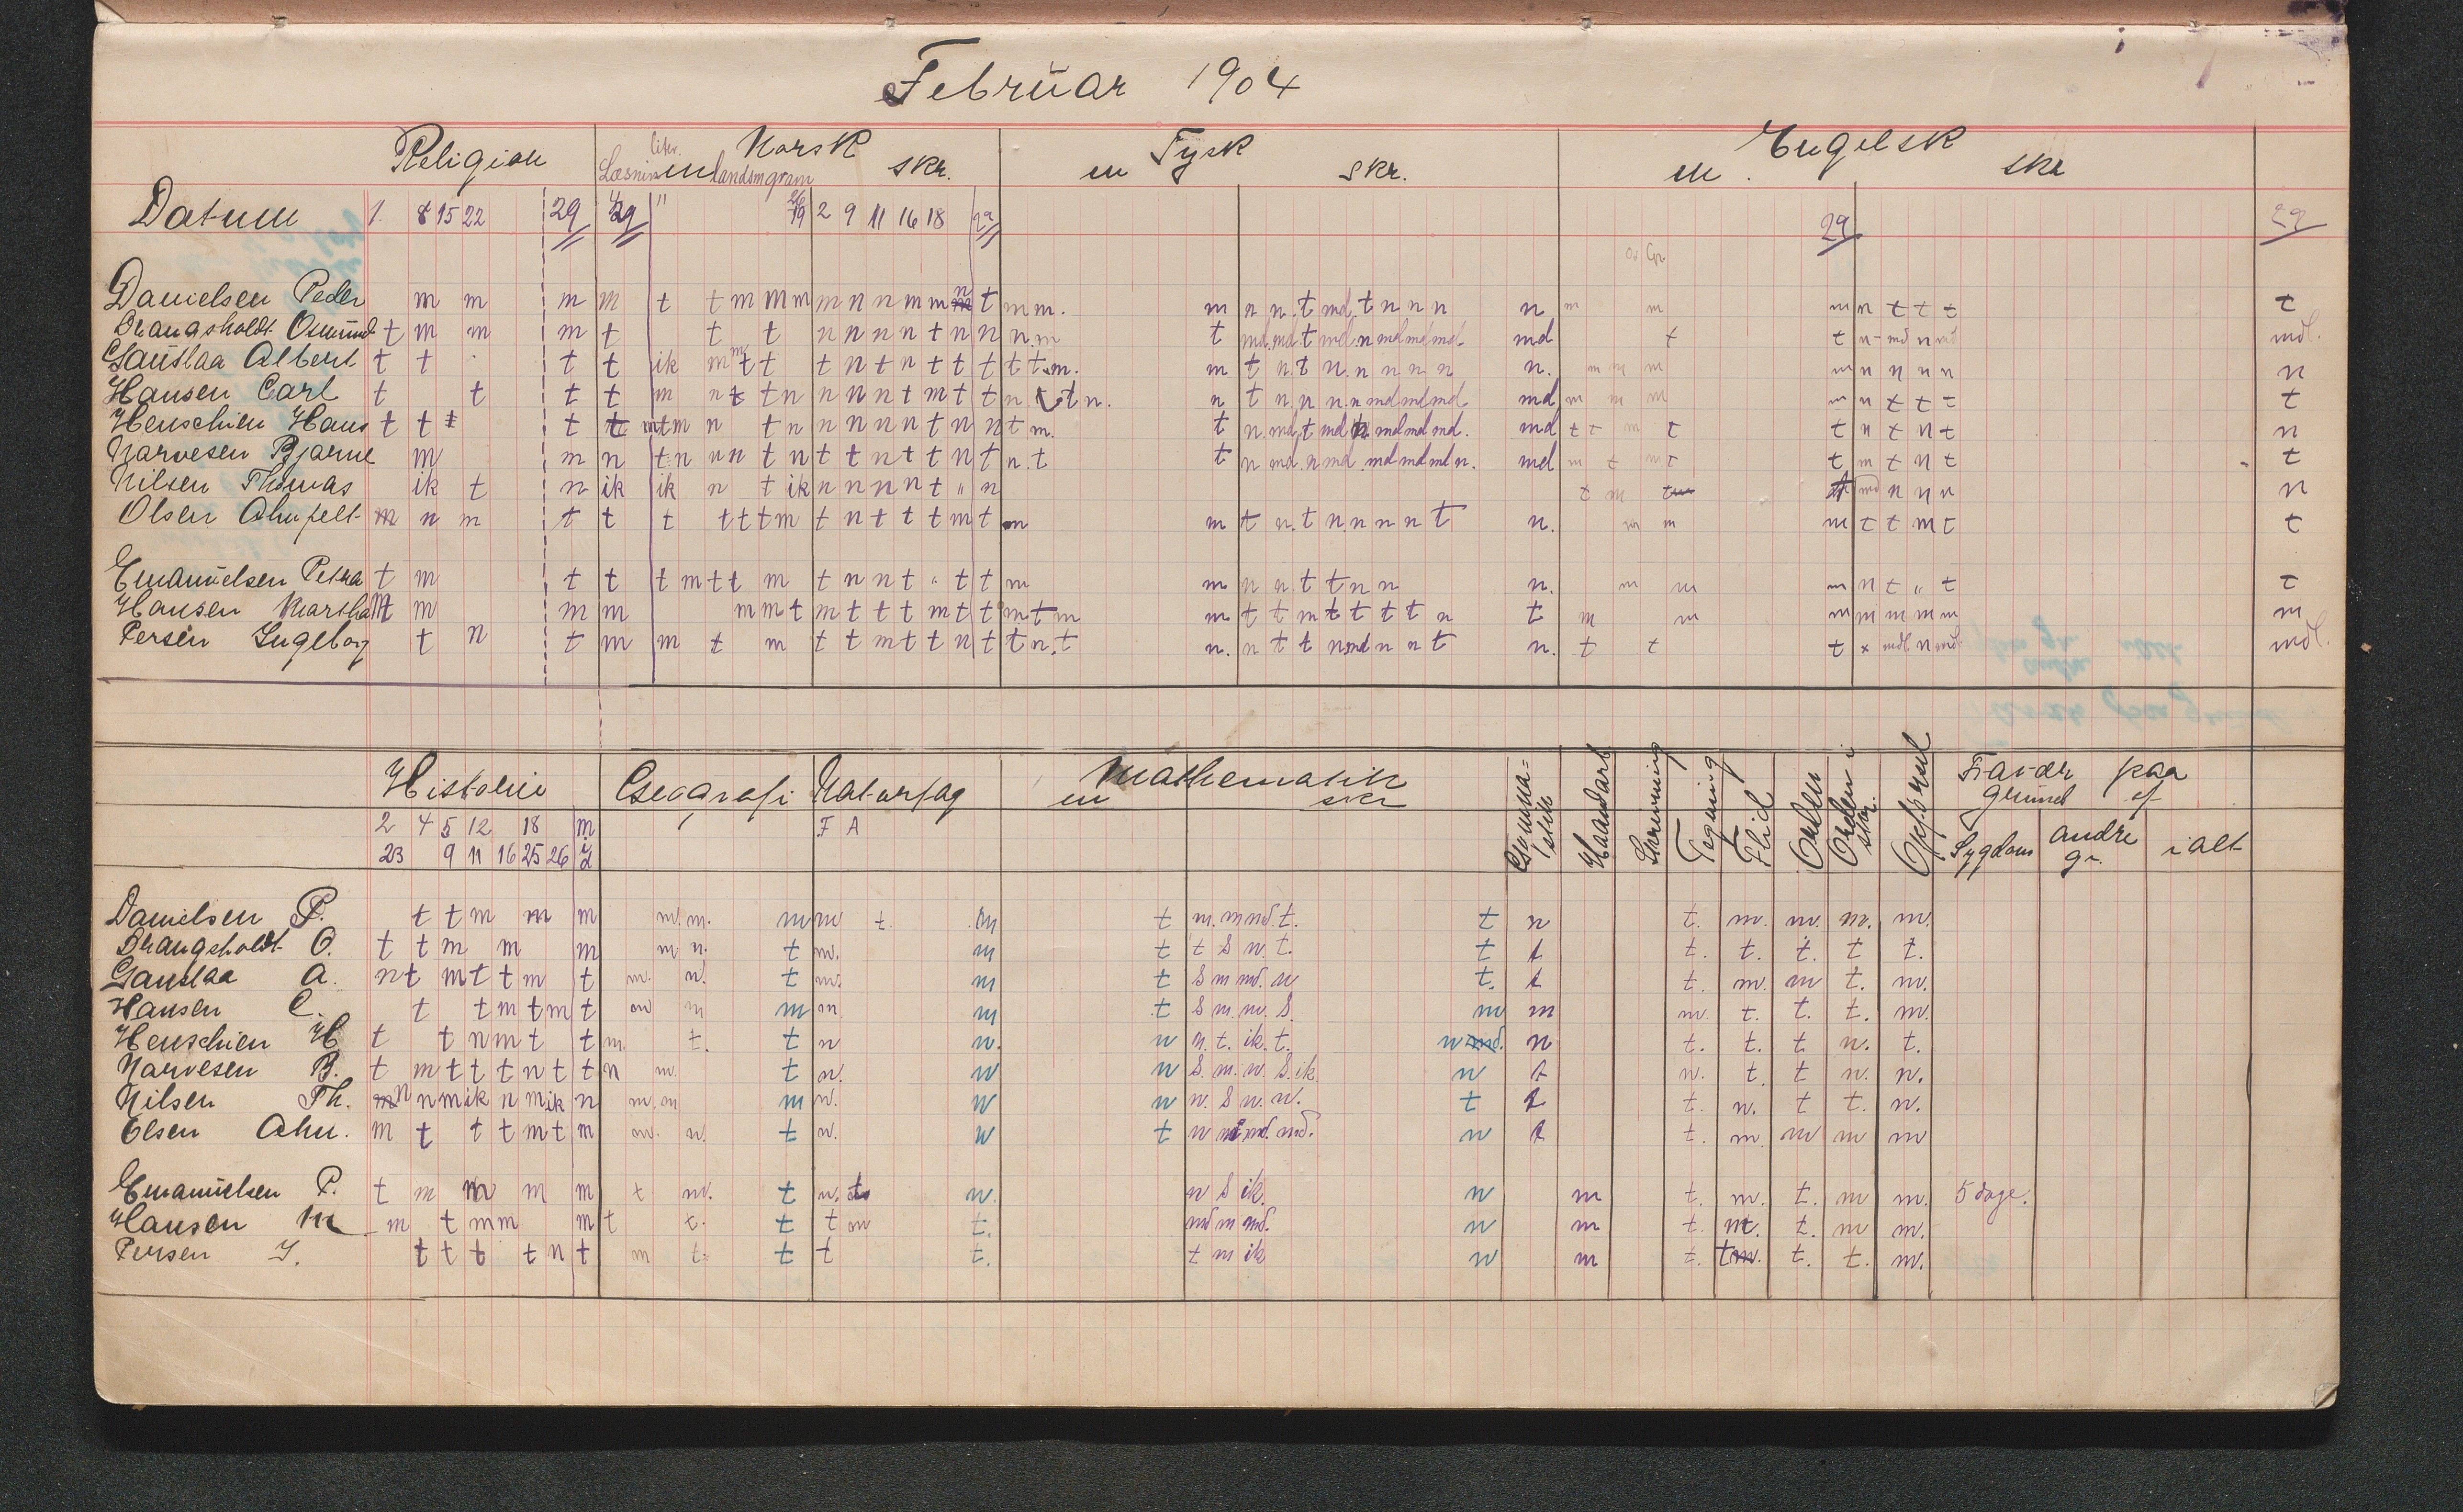 Februar 1904
Religion Norsk Tysk Engelsk
Læsning m landsm gram skr. m skr. m skr
liter.
Datum 1. 8 15 22 29 29 " 26 19 2 9 11 16 18 29 29 29
Danielsen Peder m m m m t t m m m m n n m m n t m m. m n n. t md. t n n n n m m m n t t t t
Drangsholdt Osmund t m m m t t t n n n n t n n n. m t md. md. t md. n md md md. md t t n - md n md mdl.
Gauslaa Albert t t t t ik m m t t t n t n t t t t. m. m t n. t n. n n n n n. m m m m n n n n n
Hansen Carl t t t t m n t t n n n n t m t t n. t n. n t n. n n. n md md md md m m m m n t t t t
Henschien Hans t t t t t m t m n t n n n n n t n n t m. t n. md. t md n. md md md. md t t m t t n t n t n
Narvesen Bjarne m m n t n n n t n t t n t t n t n. t t n md. n md. md md md n. md m t m t t m t n t t
Nilsen Thomas ik t n ik ik n t ik n n n n t " n t m t md n n n n
Olsen Ahnfelt m n m t t t t t t m t n t t t m t m m t n. t n. n n n t n. m m m t t m t t
Emanuelsen Petra t m t t t m t t m t n n t " t t m m n n t t n n n. m m m n t " t t
Hansen Martha m m m m m m t m t t t m t t m t m m t t m t t t t n t m m m m m m m m
Persen Ingeborg t n t m m t m t t m t t n t t n. t n. n t t n md n n t n. t t t x mdl n md mdl.
Historie Geografi Naturfag Mathematik Gymnastik Haandarb Skrivning Tegning Flid Orden Orden i skr. Opførsel Fravær paa grund af
m skr
2 4 5 12 18 mid F A Sygdom andre gr. i alt
23 9 11 16 25 26
Danielsen P. t t m m m m. m. m m t. m t m. m md. t. t n t. m. m. m. m.
Drangsholdt O. t t m m m m n. t m. m t t S n. t. t t t. t. t. t t.
Gauslaa A. n t m t t m t m. n. t m. m t S m md. n t. t t. m. m t. m.
Hansen C. t t m t m t m m m m m t S m. m. S. m m m. t. t. t. m.
Henschien H t t n m t t m. t. t n n. n n. t. ik. t. n n t. t. t n. t.
Narvesen B. t m t t t n t t n m. t n. n n S. m. n. S. ik n t n. t. t n. n.
Nilsen Th. n n m ik n m ik n m. m m n. n n n. S n. n. t t t. n. t t. n.
Olsen Ahn. m t t t m t m m. n. t n. n t n md. md. n t t. m. m m m
Emanuelsen P. t m m m m t m. t n. t n. n S ik. n m t. m. t. m m. 5 dage.
Hansen M m t m m m t t. t t m t. md m md. n m t. m. t. m m.
Persen I. t t t t n t m t. t t t. t m ik n m t. t t. t. m.